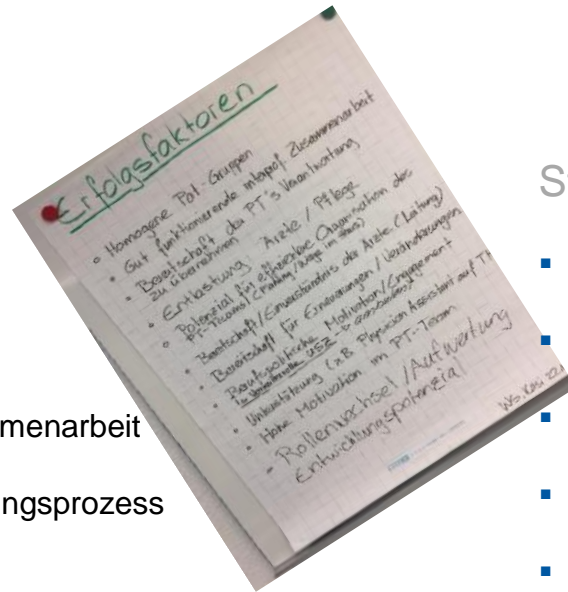 Erfolgsfaktoren
• Homogene Pat.-Gruppen
• Gut funktionierende interprof. Zusammenarbeit
• Bereitschaft der PT's Verantwortung
zu übernehmen
• Entlastung Ärzte / Pflege
• Potenzial für effiziente Organisation des
PT-Teams (
• Bereitschaft/Einverständnis der Ärzte (Leitung)
• Bereitschaft für Erneuerungen / Veränderungen
• Berufspolitische Motivation/Engagement
USZ
• Unterstützung (z.B Physician Assistant auf
• Hohe Motivation im PT-Team
• Rollenwechsel / Aufwertung
Entwicklungspotenzial
menarbeit
ngsprozess
S